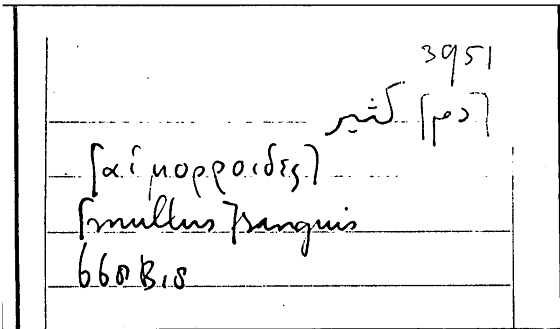 3951
[دم] كثير
[αἱμορροιδες]
[multus] sanguis